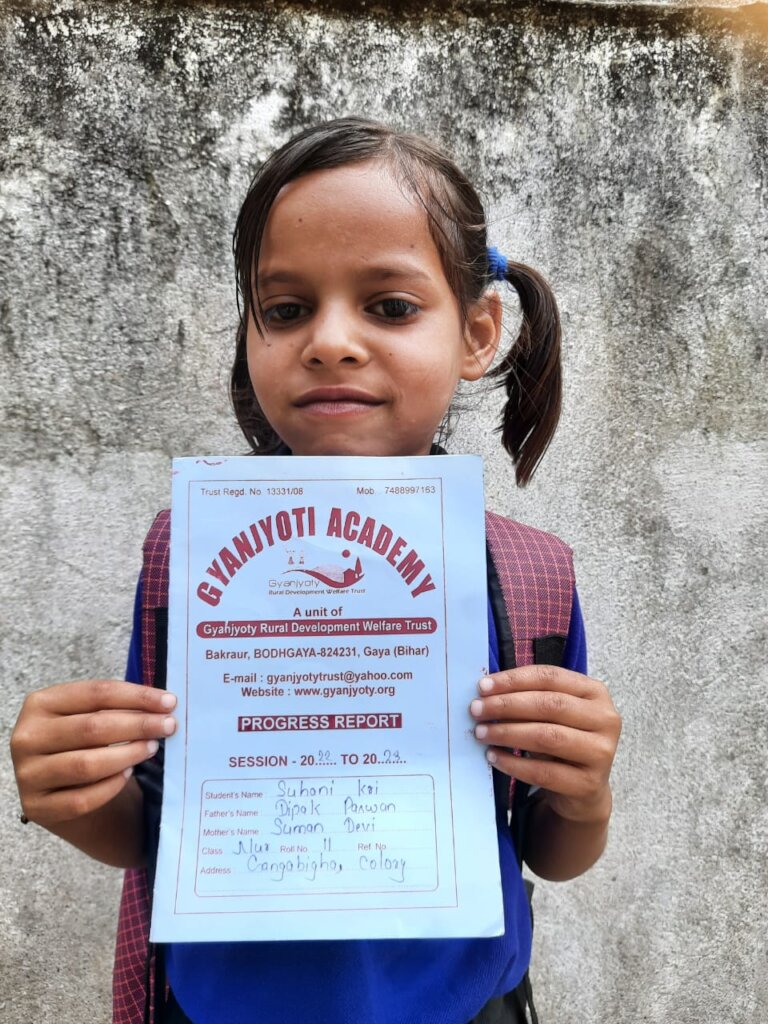 Trust Regd. No. 13331/08 Mob. 7488997163
GYANJYOTI ACADEMY
Gyanjyoty
Rural Development Welfare Trust
A unit of
Gyanjyoty Rural Development Welfare Trust
Bakraur, BODHGAYA-824231, Gaya (Bihar)
E-mail : gyanjyotytrust@yahoo.com
Website : www.gyanjyoty.org
PROGRESS REPORT
SESSION - 2022 TO 2023
Student's Name Suhani Kri
Father's Name Dipak Parwan
Mother's Name Suman Devi
Class Nur Roll No 11 Ref. No
Address : Gangabigha, Colony